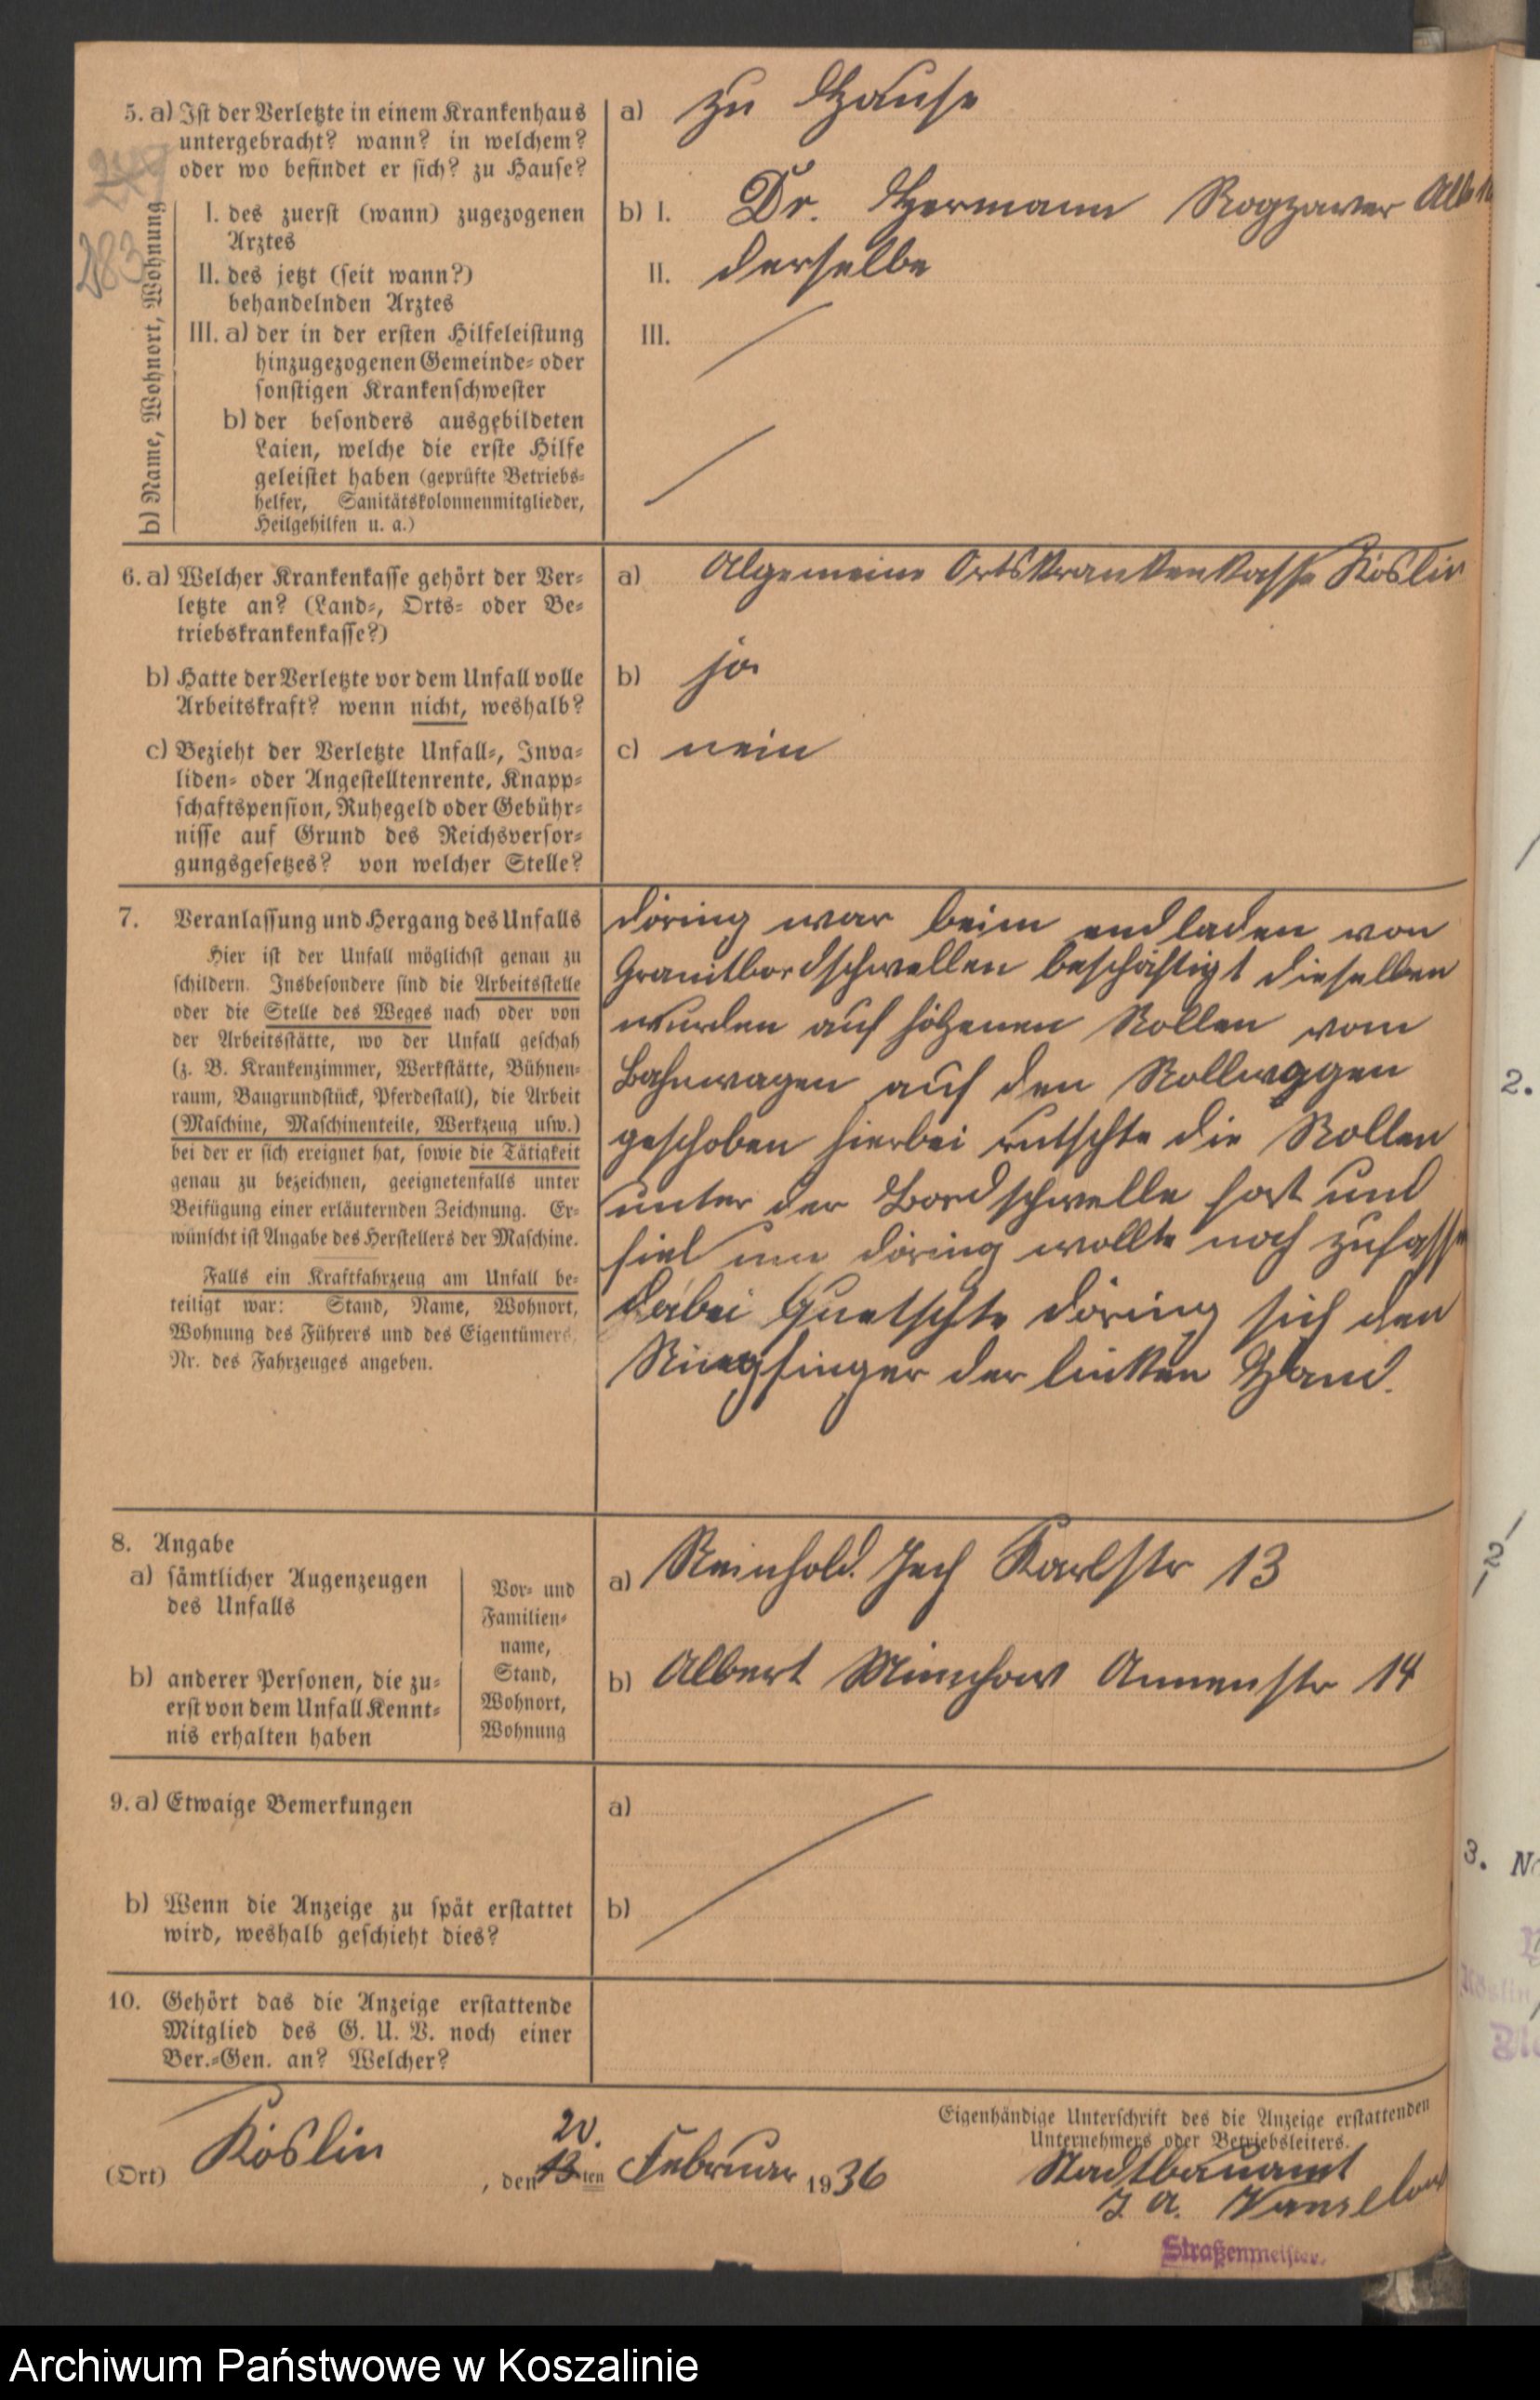 5. a) Ist der Verletzte in einem Krankenhaus
untergebracht? wann? in welchem?
oder wo befindet er sich? zu Hause?
a) zu Hause
b) Name, Wohnort, Wohnung
I. des zuerst (wann) zugezogenen
Arztes
b) I. Dr. Hermann
II. des jetzt (seit wann?)
behandelnden Arztes
II. derselbe
III. a) der in der ersten Hilfeleistung
hinzugezogenen Gemeinde- oder
sonstigen Krankenschwester
III.
b) der besonders ausgebildeten
Laien, welche die erste Hilfe
geleistet haben (geprüfte Betriebs-
helfer, Sanitätskolonnenmitglieder,
Heilgehilfen u. a.)
283
6. a) Welcher Krankenkasse gehört der Ver-
letzte an? (Land-, Orts- oder Be-
triebskrankenkasse?)
a) Algemeine Ortskrankenkasse Köslin
b) Hatte der Verletzte vor dem Unfall volle
Arbeitskraft? wenn nicht, weshalb?
b) ja
c) Bezieht der Verletzte Unfall-, Inva-
liden- oder Angestelltenrente, Knapp-
schaftspension, Ruhegeld oder Gebühr-
nisse auf Grund des Reichsversor-
gungsgesetzes? von welcher Stelle?
c) nein
7. Veranlassung und Hergang des Unfalls
Hier ist der Unfall möglichst genau zu
schildern. Insbesondere sind die Arbeitsstelle
oder die Stelle des Weges nach oder von
der Arbeitsstätte, wo der Unfall geschah
(z. B. Krankenzimmer, Werkstätte, Bühnen-
raum, Baugrundstück, Pferdestall), die Arbeit
(Maschine, Maschinenteile, Werkzeug usw.)
bei der er sich ereignet hat, sowie die Tätigkeit
genau zu bezeichnen, geeignetenfalls unter
Beifügung einer erläuternden Zeichnung. Er-
wünscht ist Angabe des Herstellers der Maschine.
Falls ein Kraftfahrzeug am Unfall be-
teiligt war: Stand, Name, Wohnort,
Wohnung des Führers und des Eigentümers,
Nr. des Fahrzeuges angeben.
Döring war beim endladen von
Granitbordschwellen beschäftigt dieselben
wurden auf hölzenen Rollen vom
Bahnwagen auf den Rollwagen
geschoben hierbei rutschte die Rollen
unter der Bordschwelle fort und
fiel um Döring wollte noch zufassen
dabei Quetschte Döring sich den
Ringfinger der linken Hand.
8. Angabe
a) sämtlicher Augenzeugen
des Unfalls
b) anderer Personen, die zu-
erst von dem Unfall Kennt-
nis erhalten haben
Vor- und
Familien-
name,
Stand,
Wohnort,
Wohnung
a) Reinhold Jech Karlstr 13
b) Albert Münchow Annenstr 14
9. a) Etwaige Bemerkungen
a)
b) Wenn die Anzeige zu spät erstattet
wird, weshalb geschieht dies?
b)
10. Gehört das die Anzeige erstattende
Mitglied des G. U. V. noch einer
Ber.-Gen. an? Welcher?
Eigenhändige Unterschrift des die Anzeige erstattenden
Unternehmers oder Betriebsleiters.
20.
(Ort) Köslin, den 13ten Februar 1936
Stadtbauamt
J. A. Vanselow
Straßenmeister.
2.
2
3. No
Archiwum Państwowe w Koszalinie